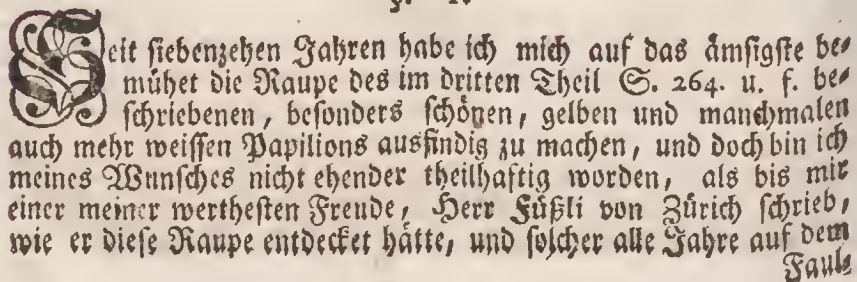 §. 1.
Seit siebenzehen Jahren habe ich mich auf das ämsigste be-
mühet die Raupe des im dritten Theil S. 264. u. f. be-
schriebenen, besonders schönen, gelben und manchmalen
auch mehr weissen Papilions ausfindig zu machen, und doch bin ich
meines Wunsches nicht ehender theilhaftig worden, als bis mir
einer meiner werthesten Freude, Herr Füßli von Zürich schrieb,
wie er diese Raupe entdecket hätte, und solcher alle Jahre auf dem
Faul-